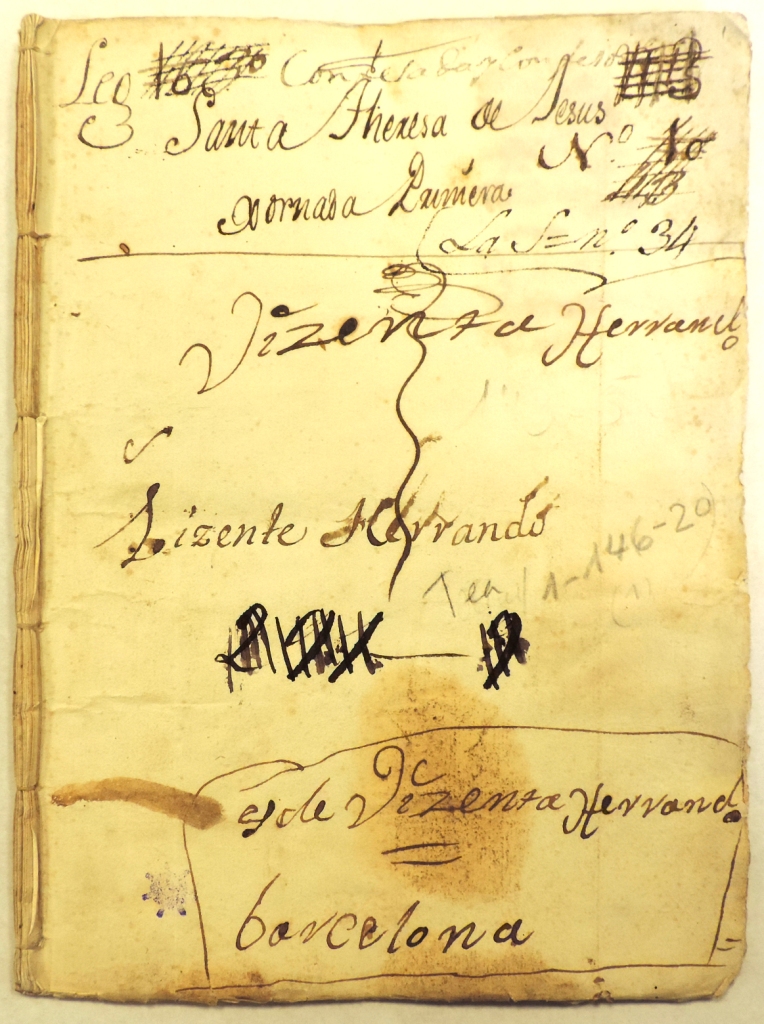 Leg
Santa Theresa de Jesus
N.º 10
Xornada Primera
La S= n.º 34
Vizenta Herrando
Vizente Herrando
Tea 1-146-20
es de Vizenta Herrando
barcelona